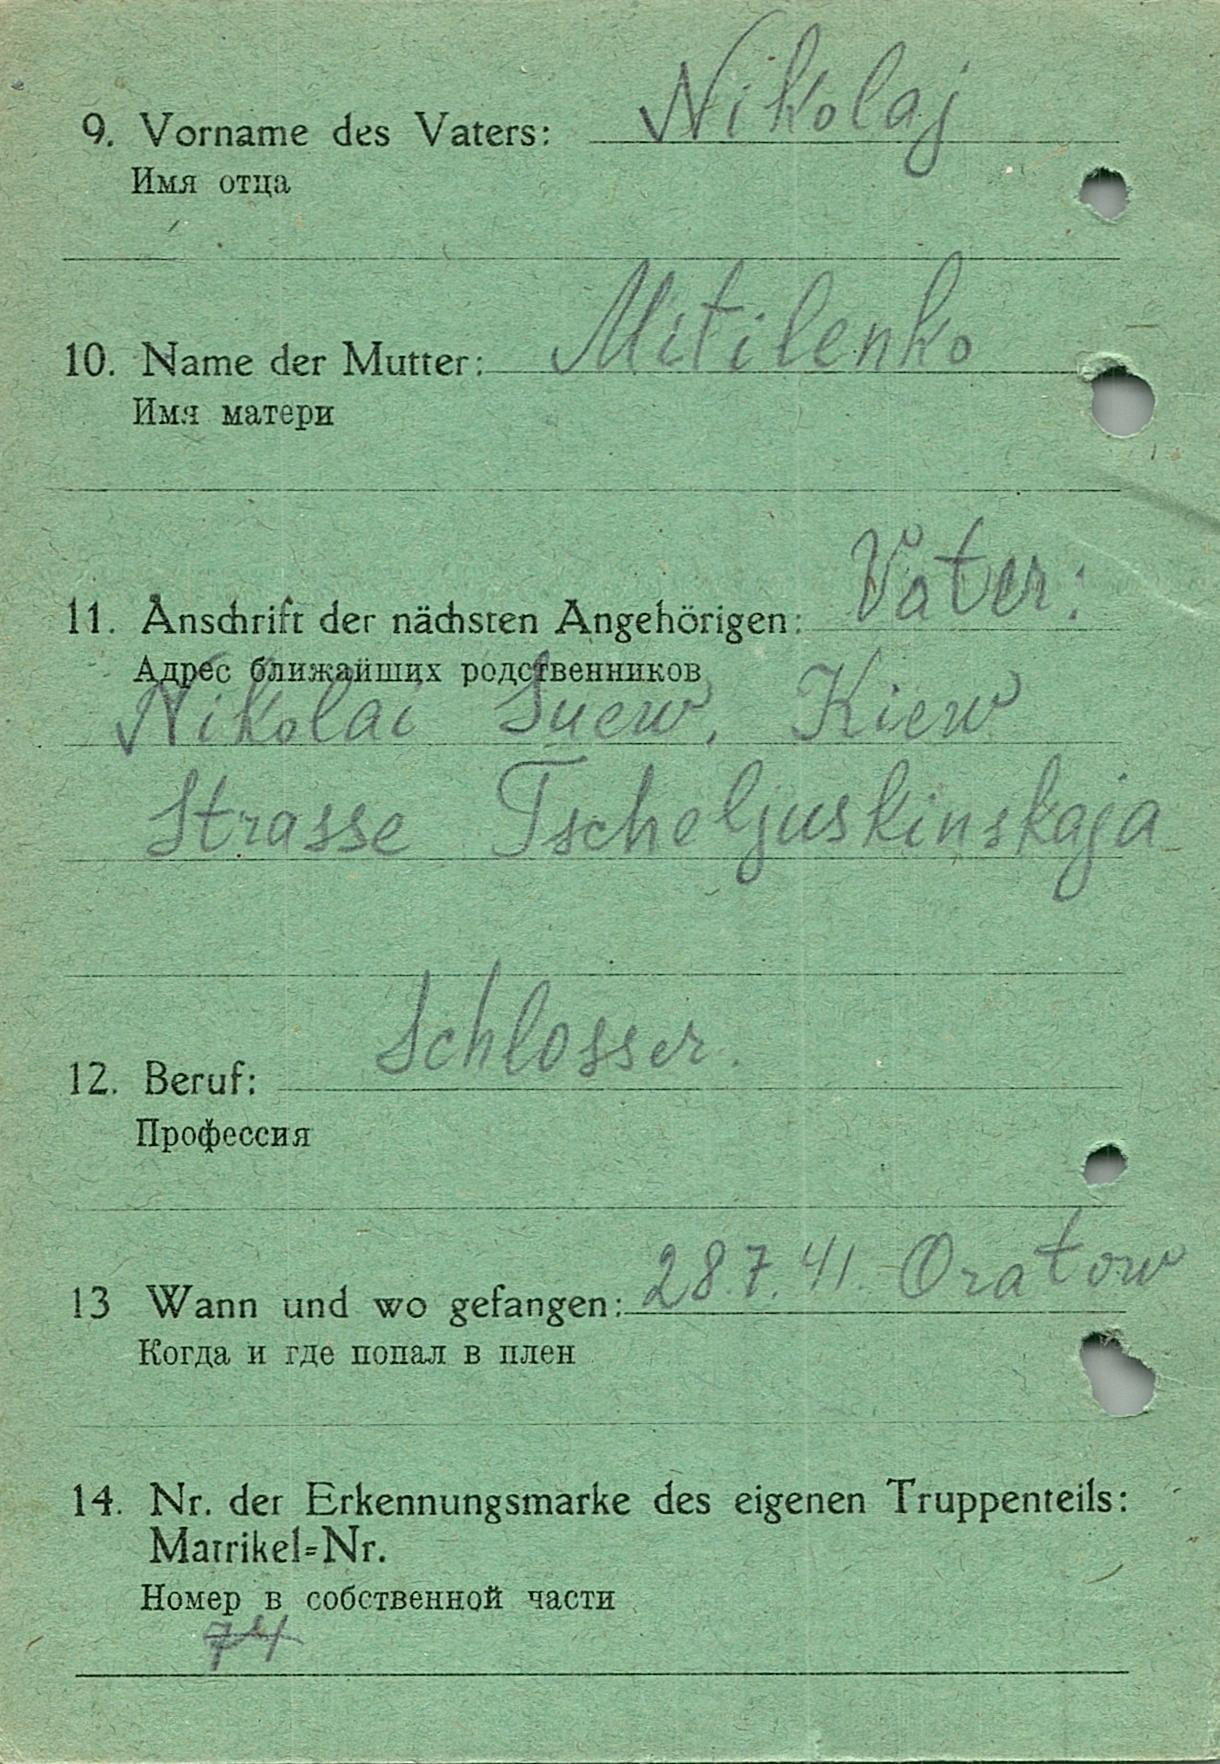 9. Vorname des Vaters: Nikolaj
Имя отца
10. Name der Mutter: Mitilenko
Имя матери
11. Anschrift der nächsten Angehörigen: Vater:
Адрес ближайших родственников
Nikolai Suew, Kiew
Strasse Tscheljuskinskaja
12. Beruf: Schlosser.
Профессия
13 Wann und wo gefangen: 28.7.41 Oratow
Когда и где попал в плен
14. Nr. der Erkennungsmarke des eigenen Truppenteils:
Matrikel=Nr.
Номер в собственной части
74